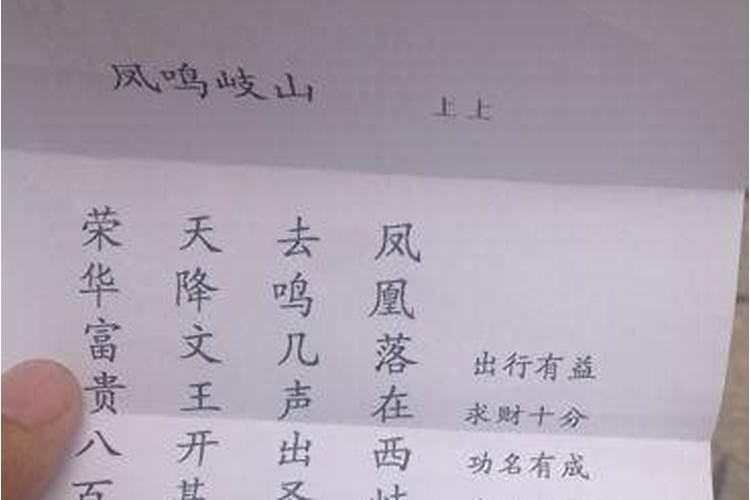 凤鸣岐山
上上
出行有益
求财十分
功名有成
凤凰落在西
去鸣几声出
天降文王开
荣华富贵八百